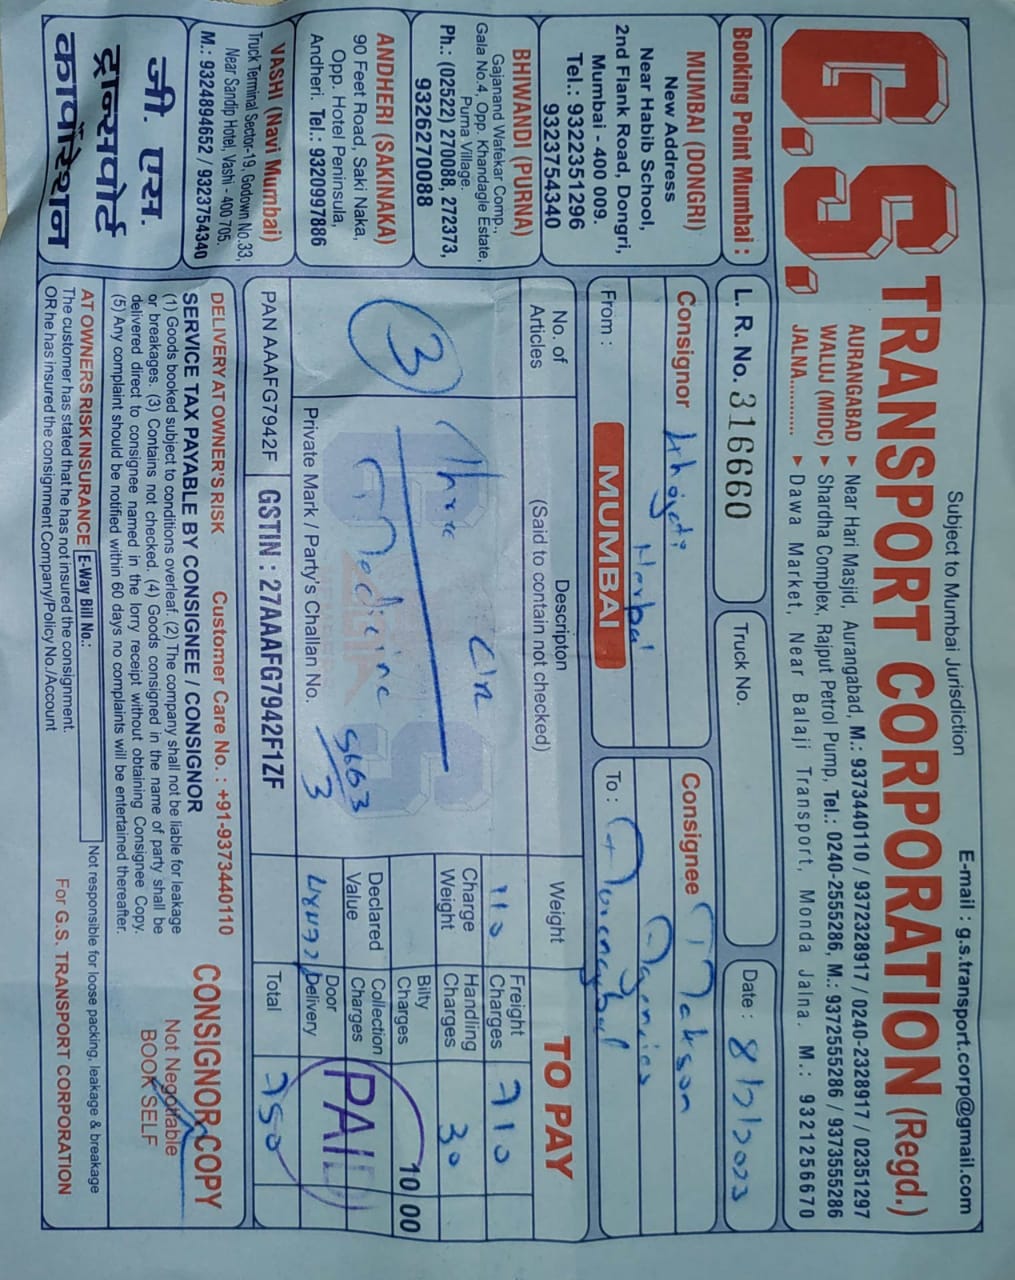 Subject to Mumbai Jurisdiction
E-mail : g.s.transport.corp@gmail.com
G.S. TRANSPORT CORPORATION (Regd.)
AURANGABAD ▸ Near Hari Masjid, Aurangabad, M.: 9373440110 / 9372328917 / 0240-2328917 / 02351297
WALUJ (MIDC) ▸ Shardha Complex, Rajput Petrol Pump, Tel.: 0240-2555286, M.: 9372555286 / 9373555286
JALNA............ ▸ Dawa Market, Near Balaji Transport, Monda Jalna. M.: 9321256670
Booking Point Mumbai :
MUMBAI (DONGRI)
New Address
Near Habib School,
2nd Flank Road, Dongri,
Mumbai - 400 009.
Tel.: 9322351296
9323754340
BHIWANDI (PURNA)
Gajanand Wafekar Comp.,
Gala No.4, Opp. Khandagle Estate,
Purna Village.
Ph.: (02522) 270088, 272373,
9326270088
ANDHERI (SAKINAKA)
90 Feet Road, Saki Naka,
Opp. Hotel Peninsula,
Andheri. Tel.: 9320997886
VASHI (Navi Mumbai)
Truck Terminal Sector-19, Godown No.33,
Near Sandip Hotel, Vashi - 400 705.
M.: 9324894652 / 9323754340
जी. एस.
ट्रान्सपोर्ट
कार्पोरेशन
L. R. No. 316660
Truck No.
Date : 8/2/2023
Consignor Herbal
Consignee Makson
Agencies
From : MUMBAI
To : Aurangabad
No. of Articles
Descripton
(Said to contain not checked)
Weight
TO PAY
3
Three
Medicine
5663
3
Private Mark / Party's Challan No.
Charge Weight
Declared Value
Freight Charges 710
Handling Charges 30
Bilty Charges 10 00
Collection Charges
Door Delivery
PAID
Total 750
PAN AAAFG7942F
GSTIN : 27AAAFG7942F1ZF
DELIVERY AT OWNER'S RISK Customer Care No. : +91-9373440110
SERVICE TAX PAYABLE BY CONSIGNEE / CONSIGNOR
(1) Goods booked subject to conditions overleaf. (2) The company shall not be liable for leakage
or breakages. (3) Contains not checked. (4) Goods consigned in the name of party shall be
delivered direct to consignee named in the lorry receipt without obtaining Consignee Copy.
(5) Any complaint should be notified within 60 days no complaints will be entertained thereafter.
CONSIGNOR COPY
Not Negotiable
BOOK SELF
AT OWNERS RISK INSURANCE E-Way Bill No.:
The customer has stated that he has not insured the consignment.
OR he has insured the consignment Company/Policy No./Account
Not responsible for loose packing, leakage & breakage
For G.S. TRANSPORT CORPORATION